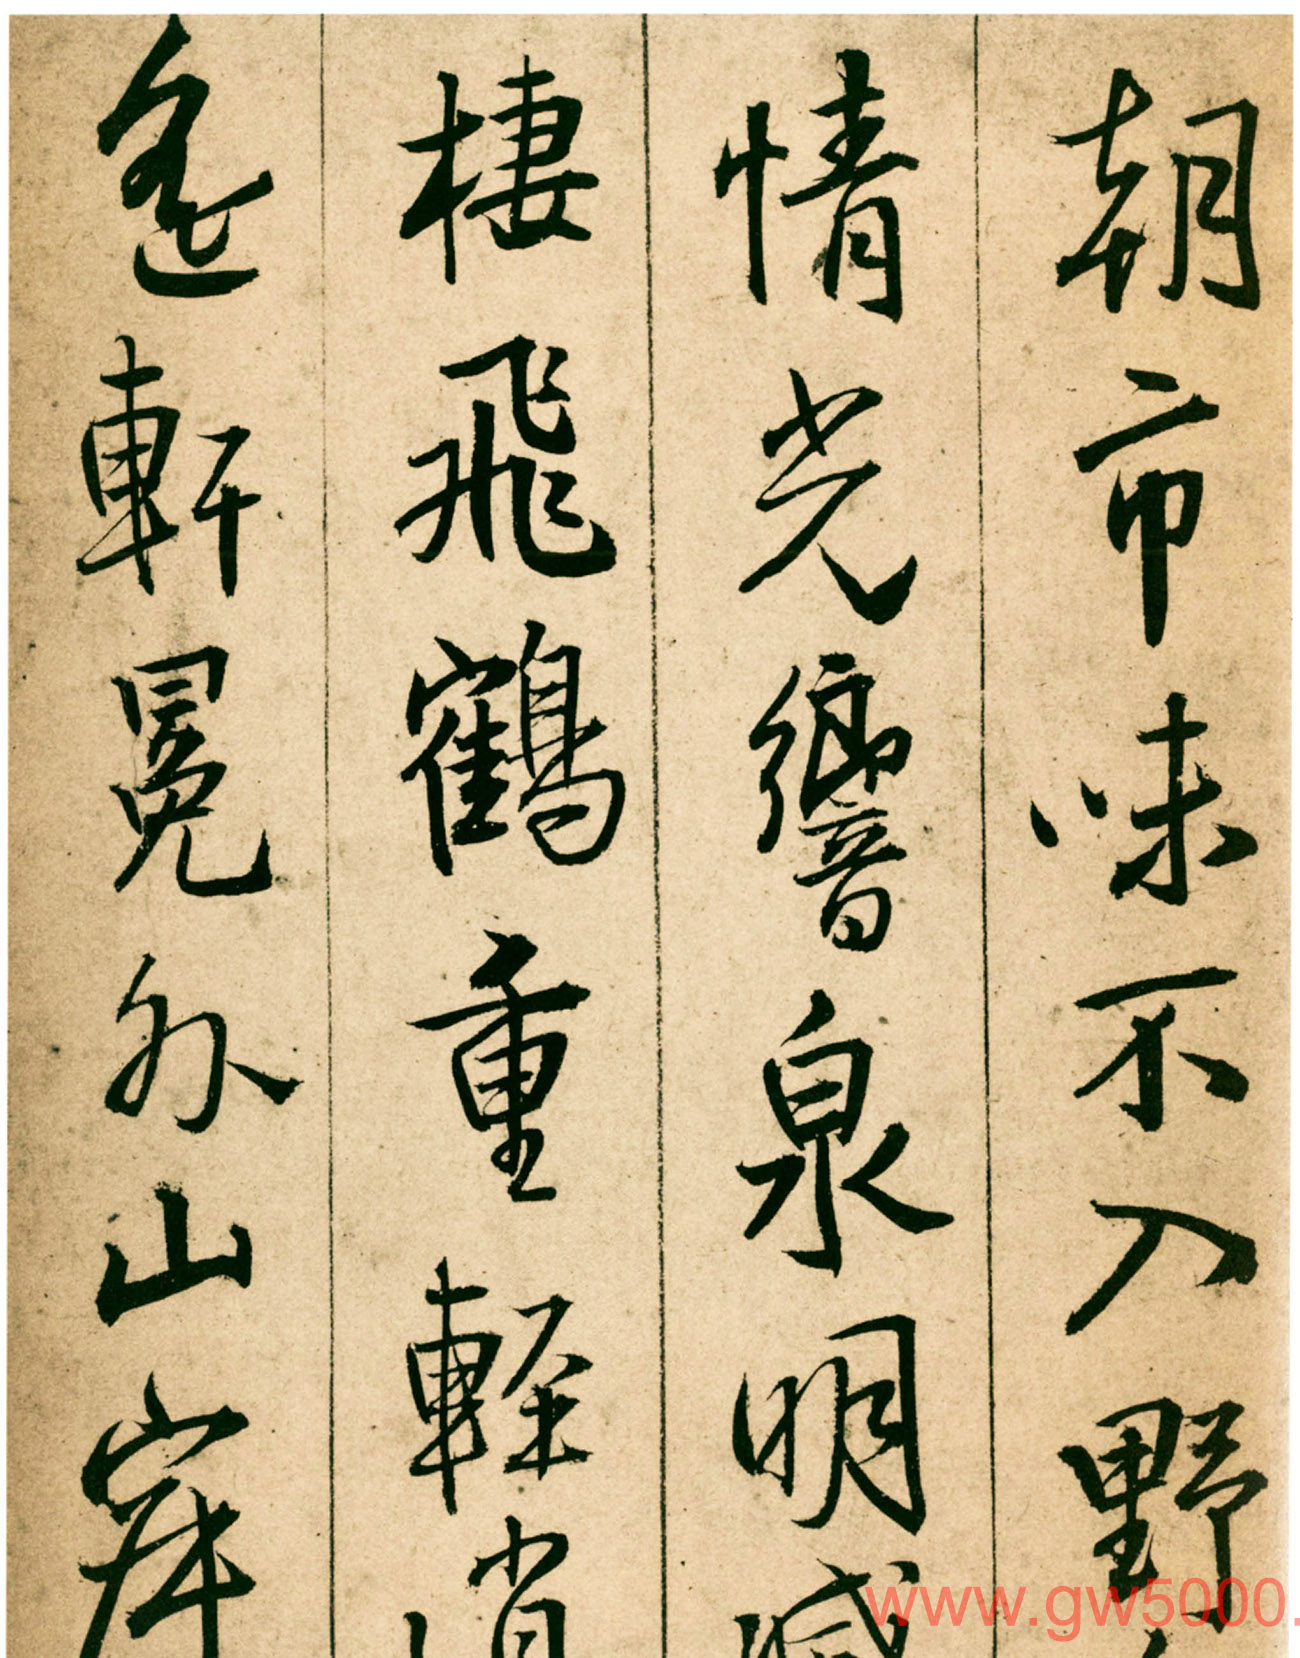 朝市味不入野
情光響泉明
棲飛鶴重輕
遙軒冕外山
www.gw5000.